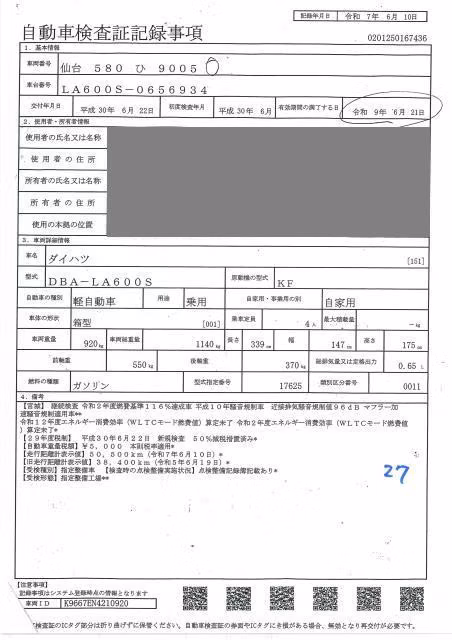 記録年月日 令和 7年 6月 10日
自動車検査証記録事項
0201250167436
1. 基本情報
車両番号 仙台 580 ひ 9005
車台番号 LA600S-0656934
交付年月日 平成 30年 6月 22日 初度検査年月 平成 30年 6月 有効期間の満了する日 令和 9年 6月 21日
2. 使用者・所有者情報
使用者の氏名又は名称
使用者の住所
所有者の氏名又は名称
所有者の住所
使用の本拠の位置
3. 車両詳細情報
車名 ダイハツ [151]
型式 DBA-LA600S 原動機の型式 KF
自動車の種別 軽自動車 用途 乗用 自家用・事業用の別 自家用
車体の形状 箱型 [001] 乗車定員 4人 最大積載量 -kg
車両重量 920kg 車両総重量 1140kg 長さ 339cm 幅 147cm 高さ 175cm
前軸重 550kg 後軸重 370kg 総排気量又は定格出力 0.65 L
燃料の種類 ガソリン 型式指定番号 17625 類別区分番号 0011
4. 備考
【宮城】 継続検査 令和2年度燃費基準116%達成車 平成10年騒音規制車 近接排気騒音規制値96dB マフラー加
速騒音規制適用車**
令和12年度エネルギー消費効率(WLTCモード燃費値)算定未了 令和2年度エネルギー消費効率(WLTCモード燃費値
)算定未了*
【29年度税制】 平成30年6月22日 新規検査 50%減税措置済み*
【自動車重量税額】¥5,000 本則税率適用*
【走行距離計表示値】50,500km(令和7年6月10日)*
【旧走行距離計表示値】38,400km(令和5年6月19日)*
【受検種別】指定整備車 【検査時の点検整備実施状況】点検整備記録簿記載あり*
【受検形態】指定整備工場**
27
【注意事項】
記録事項はシステム登録時点の情報となります
車両ID K9667EN4210920
検査証のICタグ部分は折り曲げずに保管ください。自動車検査証の券面やICタグに き損がある場合、無効となり再交付が必要です。